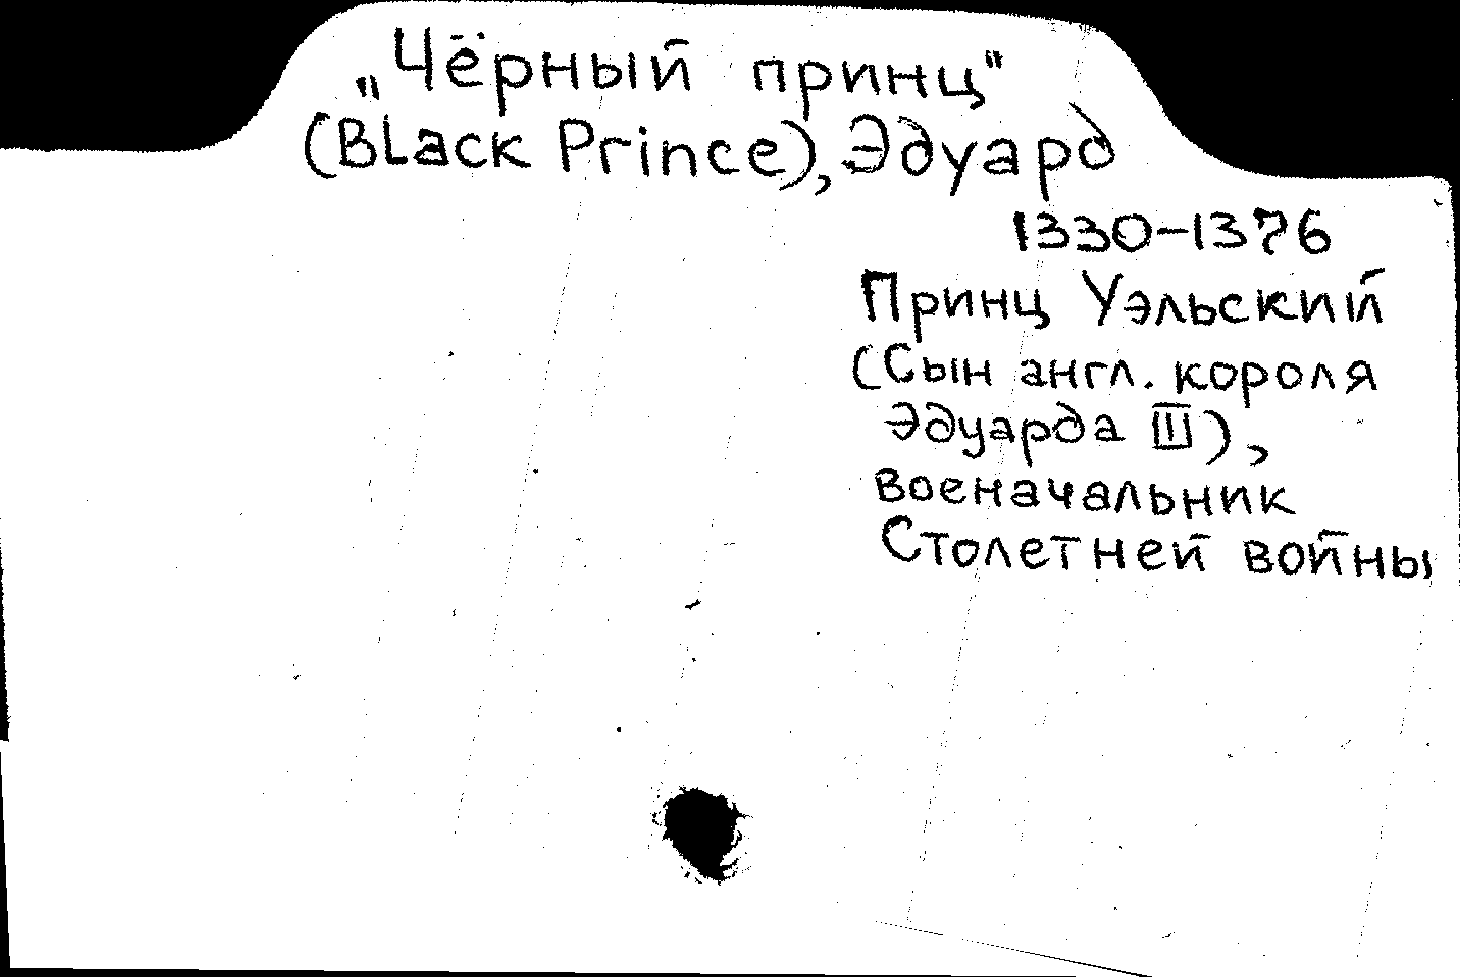 „Чёрный принц"
(Black Prince), Эдуард
1330-1376
Принц Уэльский
(Сын англ. короля
Эдуарда III),
военачальник
Столетней войны